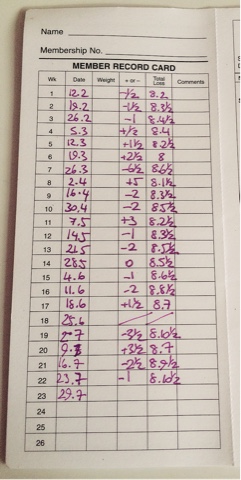 Name
Membership No.
MEMBER RECORD CARD
Wk Date Weight + or − Total Loss Comments
1 12.2 -½ 8.2
2 19.2 -1½ 8.3½
3 26.2 -1 8.4½
4 5.3 +½ 8.4
5 12.3 +1½ 8.2½
6 19.3 +2½ 8
7 26.3 -6½ 8.6½
8 2.4 +5 8.1½
9 16.4 -2 8.3½
10 30.4 -2 8.5½
11 7.5 +3 8.2½
12 14.5 -1 8.3½
13 21.5 -2 8.5½
14 28.5 0 8.5½
15 4.6 -1 8.6½
16 11.6 -2 8.8½
17 18.6 +1½ 8.7
18 25.6
19 2.7 -3½ 8.10½
20 9.7 +3½ 8.7
21 16.7 -2½ 8.9½
22 23.7 -1 8.10½
23 29.7
24
25
26